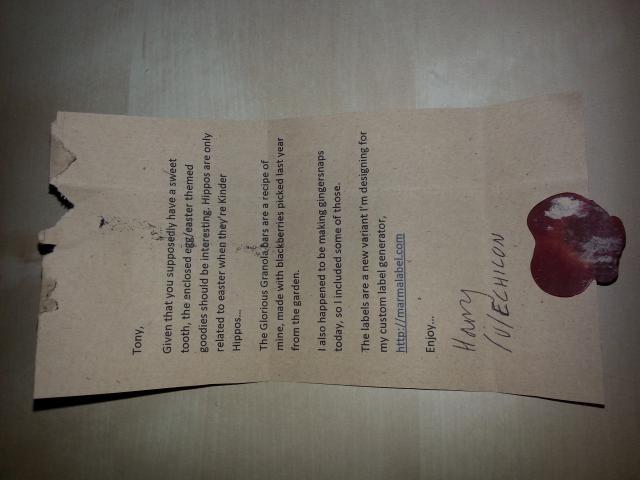 Tony,
Given that you supposedly have a sweet
tooth, the enclosed egg/easter themed
goodies should be interesting. Hippos are only
related to easter when they're Kinder
Hippos...
The Glorious Granola bars are a recipe of
mine, made with blackberries picked last year
from the garden.
I also happened to be making gingersnaps
today, so I included some of those.
The labels are a new variant I'm designing for
my custom label generator,
http://marmalabel.com
Enjoy...
Harry
/U/ECHILON